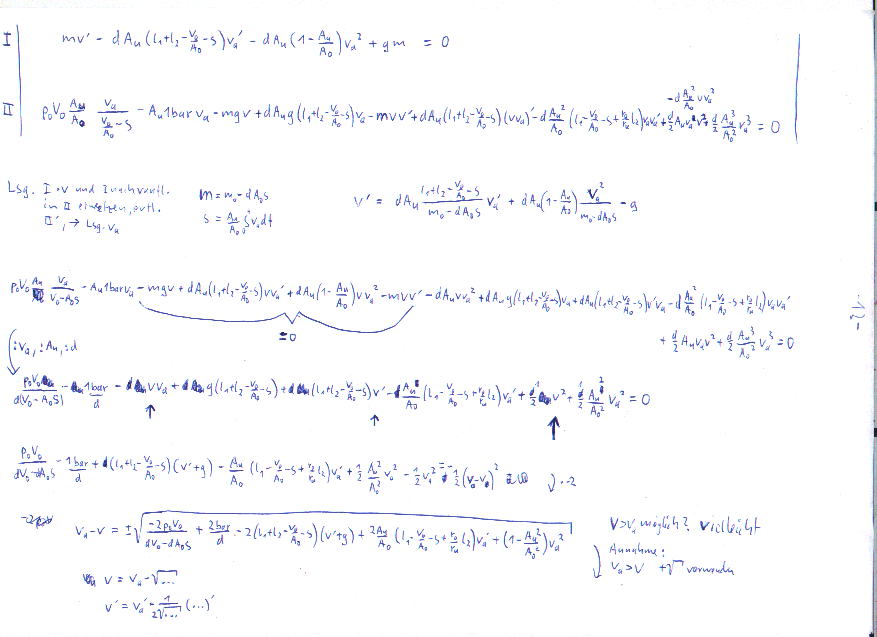 I mv' - dA_u(l_1+l_2-V_0/A_0-s)v_a' - dA_u(1-A_u/A_0)v_a² + gm = 0
-d A_u²/A_0 vv_a²
II p_0V_0 A_u/A_0 v_a/(V_0/A_0-s) - A_u1bar v_a - mgv + dA_u g(l_1+l_2-V_0/A_0-s)v_a - mvv' + dA_u(l_1+l_2-V_0/A_0-s)(vv_a)' - d A_u²/A_0 (l_1-V_0/A_0-s+r_0/r_u l_2)v_av_a' + d/2 A_uv_av² + d/2 A_u³/A_0² v_a³ = 0
Lsg. I·v und
in II einsetzen,
II', → Lsg. v_a
m = m_0-dA_0s
s = A_u/A_0 ∫v_a dt
v' = dA_u (l_1+l_2-V_0/A_0-s)/(m_0-dA_0s) v_a' + dA_u(1-A_u/A_0) v_a²/(m_0-dA_0s) - g
p_0V_0 A_u v_a/(V_0-A_0s) - A_u1bar v_a - mgv + dA_u(l_1+l_2-V_0/A_0-s)vv_a' + dA_u(1-A_u/A_0)vv_a² - mvv' - dA_uvv_a² + dA_ug(l_1+l_2-V_0/A_0-s)v_a + dA_u(l_1+l_2-V_0/A_0-s)v'v_a - d A_u²/A_0 (l_1-V_0/A_0-s+r_0/r_u l_2)v_av_a'
= 0
+ d/2 A_uv_av² + d/2 A_u³/A_0² v_a³ = 0
:v_a, :A_u, :d
p_0V_0/(d(V_0-A_0s)) - 1bar/d - vv_a + g(l_1+l_2-V_0/A_0-s) + (l_1+l_2-V_0/A_0-s)v' - A_u/A_0 (l_1-V_0/A_0-s+r_0/r_u l_2)v_a' + 1/2 v² + 1/2 A_u²/A_0² v_a² = 0
p_0V_0/(dV_0-dA_0s) - 1bar/d + (l_1+l_2-V_0/A_0-s)(v'+g) - A_u/A_0 (l_1-V_0/A_0-s+r_0/r_u l_2)v_a' + 1/2 A_u²/A_0² v_a² - 1/2 v_a² + 1/2 (v_a-v)² = 0 ·-2
v_a-v = ±√(-2p_0V_0/(dV_0-dA_0s) + 2bar/d - 2(l_1+l_2-V_0/A_0-s)(v'+g) + 2A_u/A_0 (l_1-V_0/A_0-s+r_0/r_u l_2)v_a' + (1-A_u²/A_0²)v_a²)
v>v_a möglich? vielleicht
Annahme:
v_a>v +√ verwenden
v = v_a-√...
v' = v_a' - 1/(2√...) (...)'